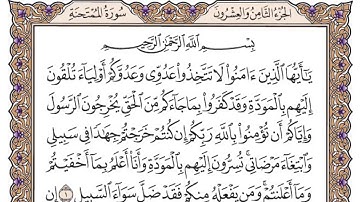 سُورَةُ المُمْتَحنَةِ
الجُزْءُ الثَّامِنُ وَالعِشْرُونَ
بِسْمِ اللَّهِ الرَّحْمَٰنِ الرَّحِيمِ
يَٰٓأَيُّهَا الَّذِينَ ءَامَنُوا۟ لَا تَتَّخِذُوا۟ عَدُوِّى وَعَدُوَّكُمْ أَوْلِيَآءَ تُلْقُونَ
إِلَيْهِم بِالْمَوَدَّةِ وَقَدْ كَفَرُوا۟ بِمَا جَآءَكُم مِّنَ الْحَقِّ يُخْرِجُونَ الرَّسُولَ
وَإِيَّاكُمْ أَن تُؤْمِنُوا۟ بِاللَّهِ رَبِّكُمْ إِن كُنتُمْ خَرَجْتُمْ جِهَٰدًا فِى سَبِيلِى
وَابْتِغَآءَ مَرْضَاتِى تُسِرُّونَ إِلَيْهِم بِالْمَوَدَّةِ وَأَنَا۠ أَعْلَمُ بِمَآ أَخْفَيْتُمْ
وَمَآ أَعْلَنتُمْ وَمَن يَفْعَلْهُ مِنكُمْ فَقَدْ ضَلَّ سَوَآءَ السَّبِيلِ ١ إِن